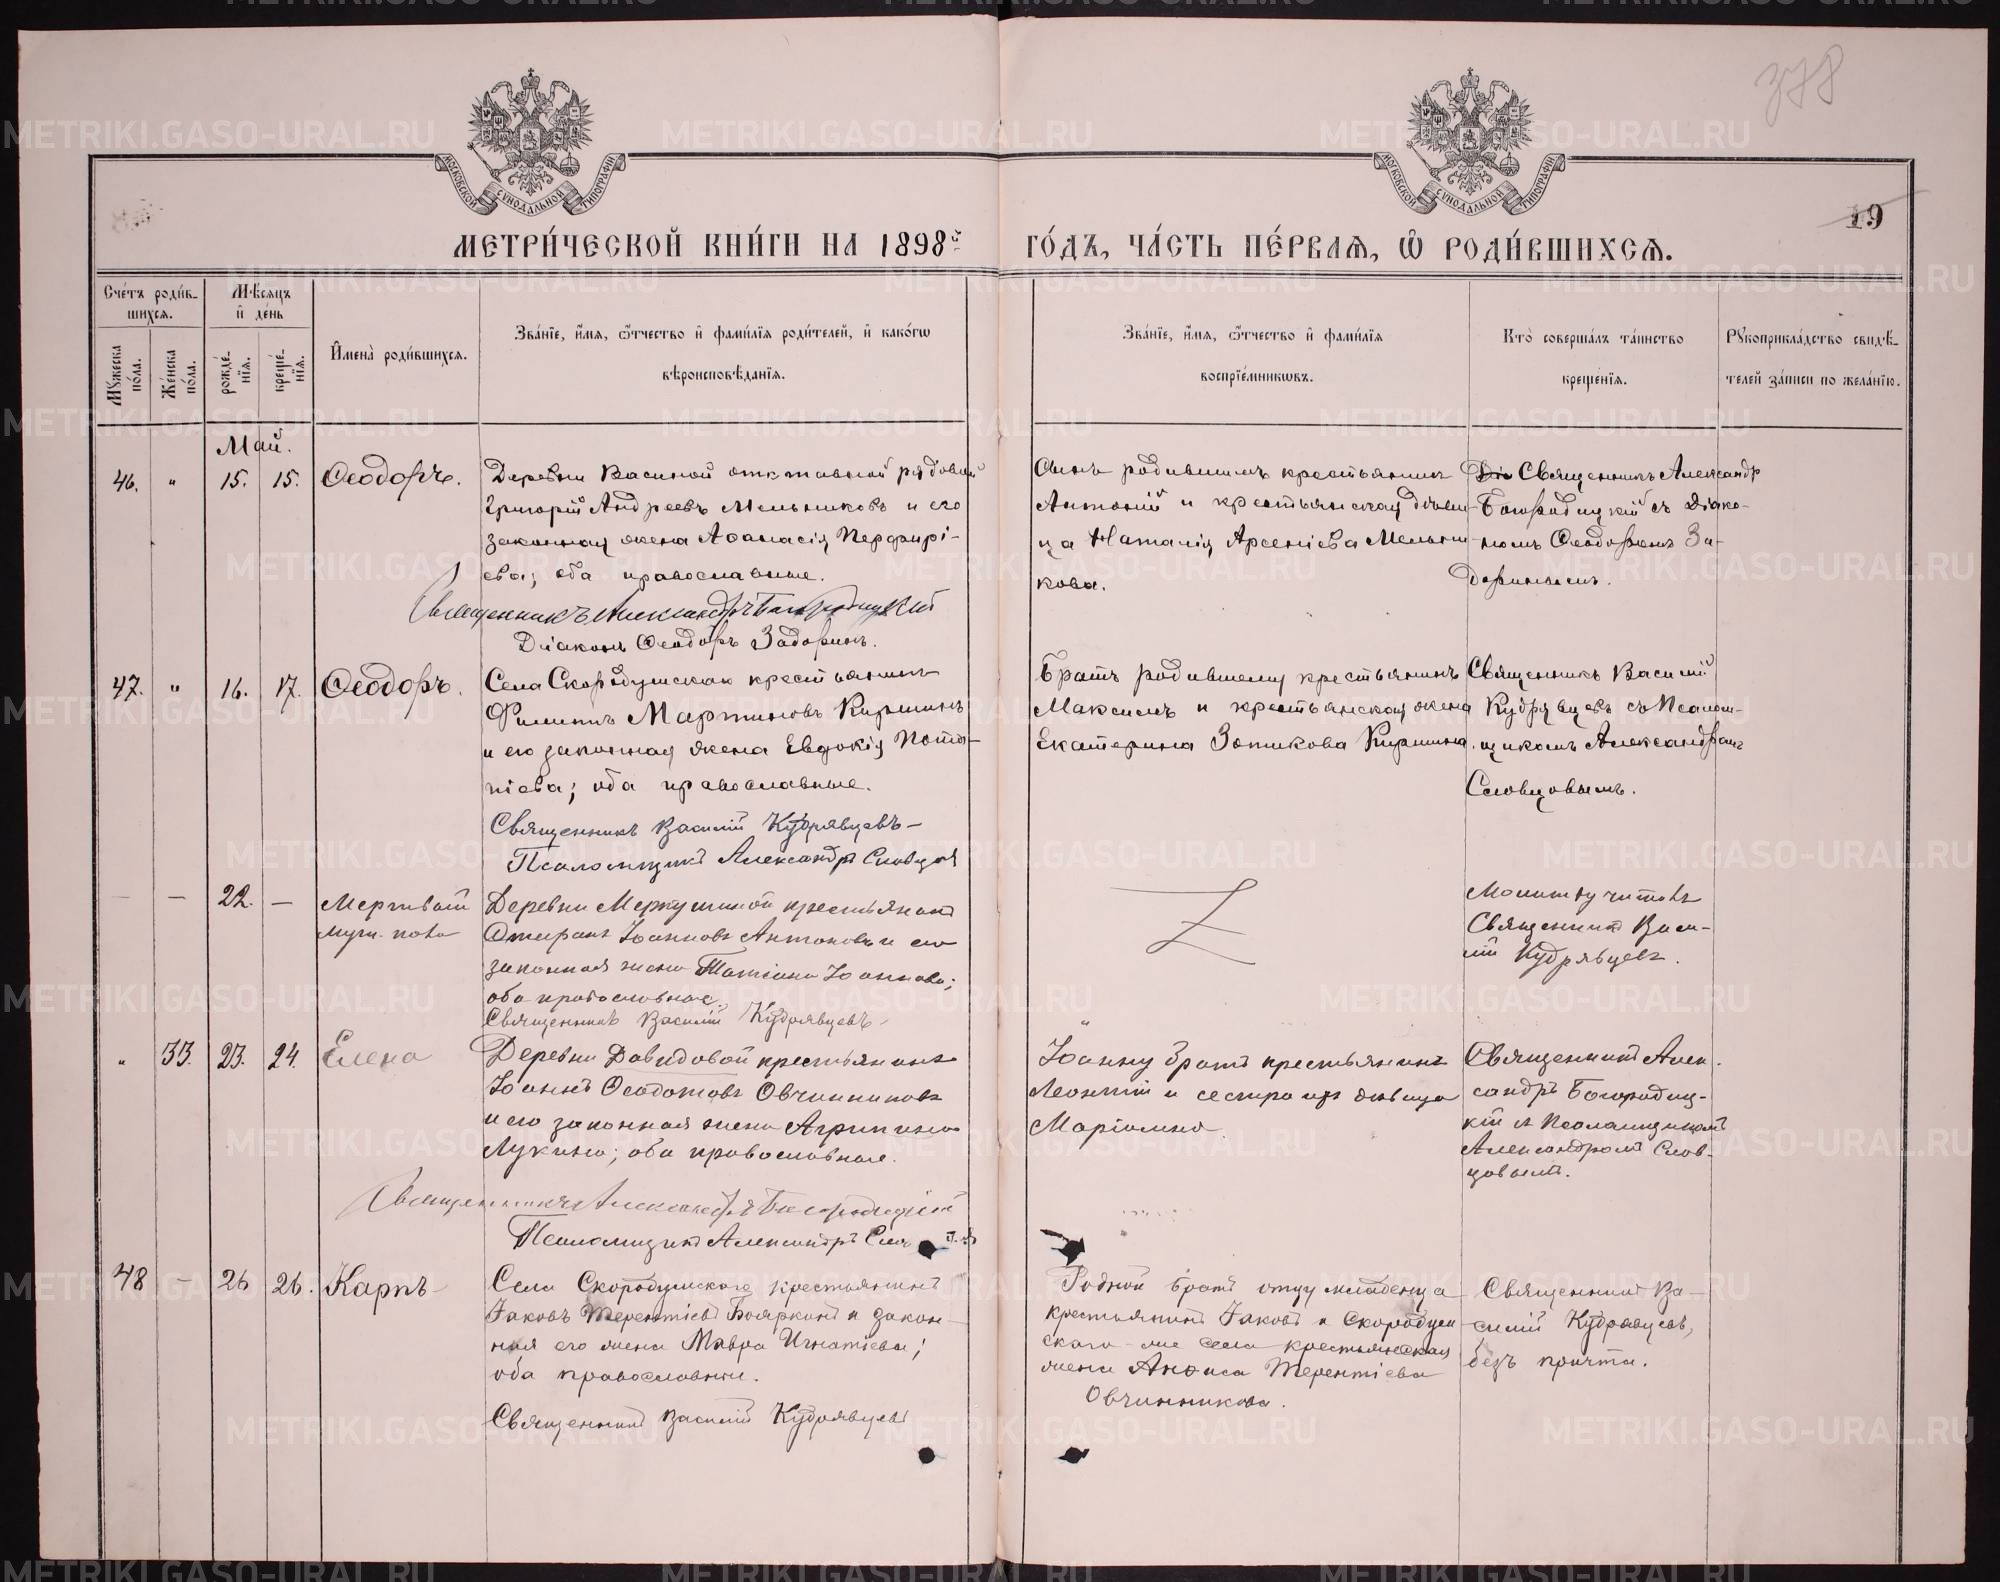 378
МОСКОВСКОЙ СУНОДАЛЬНОЙ ТИПОГРАФІИ
МОСКОВСКОЙ СУНОДАЛЬНОЙ ТИПОГРАФІИ
19
МЕТРИ́ЧЕСКОЙ КНИ́ГИ НА 1898й
ГО́ДЪ, ЧА́СТЬ ПЕ́РВАѦ, Ѡ РОДИ́ВШИХСѦ.
Сче́тъ роди́в-
шихсѧ.
Мꙋжеска
по́ла.
Же́нска
по́ла.
Мѣ́сѧцъ
и҆ де́нь
рожде́-
нїѧ.
креще́-
нїѧ.
И҆мена̀ роди́вшихсѧ.
Зва́нїе, и҆́мѧ, ѻ҆́тчество и҆ фами́лїѧ роди́телей, и҆ како́гѡ
вѣроисповѣ́данїѧ.
Зва́нїе, и҆́мѧ, ѻ҆́тчество и҆ фами́лїѧ
воспрїе́мникѡвъ.
Кто̀ соверша́лъ та́инство
креще́нїѧ.
Рꙋкоприкла́дство свидѣ́-
телей за́писи по жела́нїю.
Май.
46. " 15. 15. Ѳеодоръ.
Деревни Васиной отставной рядовой
Григорій Андреевъ Мельниковъ и его
законная жена Аѳанасія Перфирі-
ева; оба православные.
Священникъ Александръ Богородицкій
Діаконъ Ѳеодоръ Задоринъ.
Сынъ родившимъ крестьянинъ
Антоній и крестьянская дѣви-
ца Наталія Арсеніева Мельни-
кова.
Священникъ Александр
Богородицкій съ Діако-
номъ Ѳеодоромъ За-
доринымъ.
47. " 16. 17. Ѳеодоръ.
Села Скородумскаго крестьянинъ
Филиппъ Мартиновъ Киршинъ
и его законная жена Евдокія Пота-
піева; оба православные.
Священникъ Василій Кудрявцевъ
Псаломщикъ Александръ Словцов
Братъ родившему крестьянинъ
Максимъ и крестьянская жена
Екатерина Зотикова Киршина.
Священникъ Василій
Кудрявцевъ съ Псалом-
щикомъ Александромъ
Словцовымъ.
— — 22. — Мертвый
муж. пола
Деревни Меркушиной крестьянинъ
Іоанновъ Антоновъ и его
законная жена Татіана Іоаннова;
оба православные.
Священникъ Василій Кудрявцевъ
Молитву читалъ
Священникъ Васи-
лій Кудрявцевъ.
" 33. 23. 24. Елена
Деревни Давидовой крестьянинъ
Іоаннъ Ѳеодотовъ Овчинниковъ
и его законная жена Агрипина
Лукина; оба православные.
Священникъ Александръ Богородицкій
Псаломщикъ Александръ
Іоанну братъ крестьянинъ
Леонтій и сестра их дѣвица
Маріамна.
Священникъ Алек-
сандръ Богородиц-
кій съ Псаломщикомъ
Александромъ Слов-
цовымъ.
48 — 26 26. Карпъ
Села Скородумского крестьянинъ
Іаковъ Терентіевъ Бояркинъ и закон-
ная его жена Мавра Игнатіева;
оба православные.
Священникъ Василій Кудрявцевъ
Родной братъ отцу младенца
крестьянинъ Іаковъ и Скородум-
скаго-же села крестьянская
жена Анѳиса Терентіева
Овчинникова.
Священникъ Ва-
силій Кудрявцевъ,
безъ причта.
METRIKI.GASO-URAL.RU